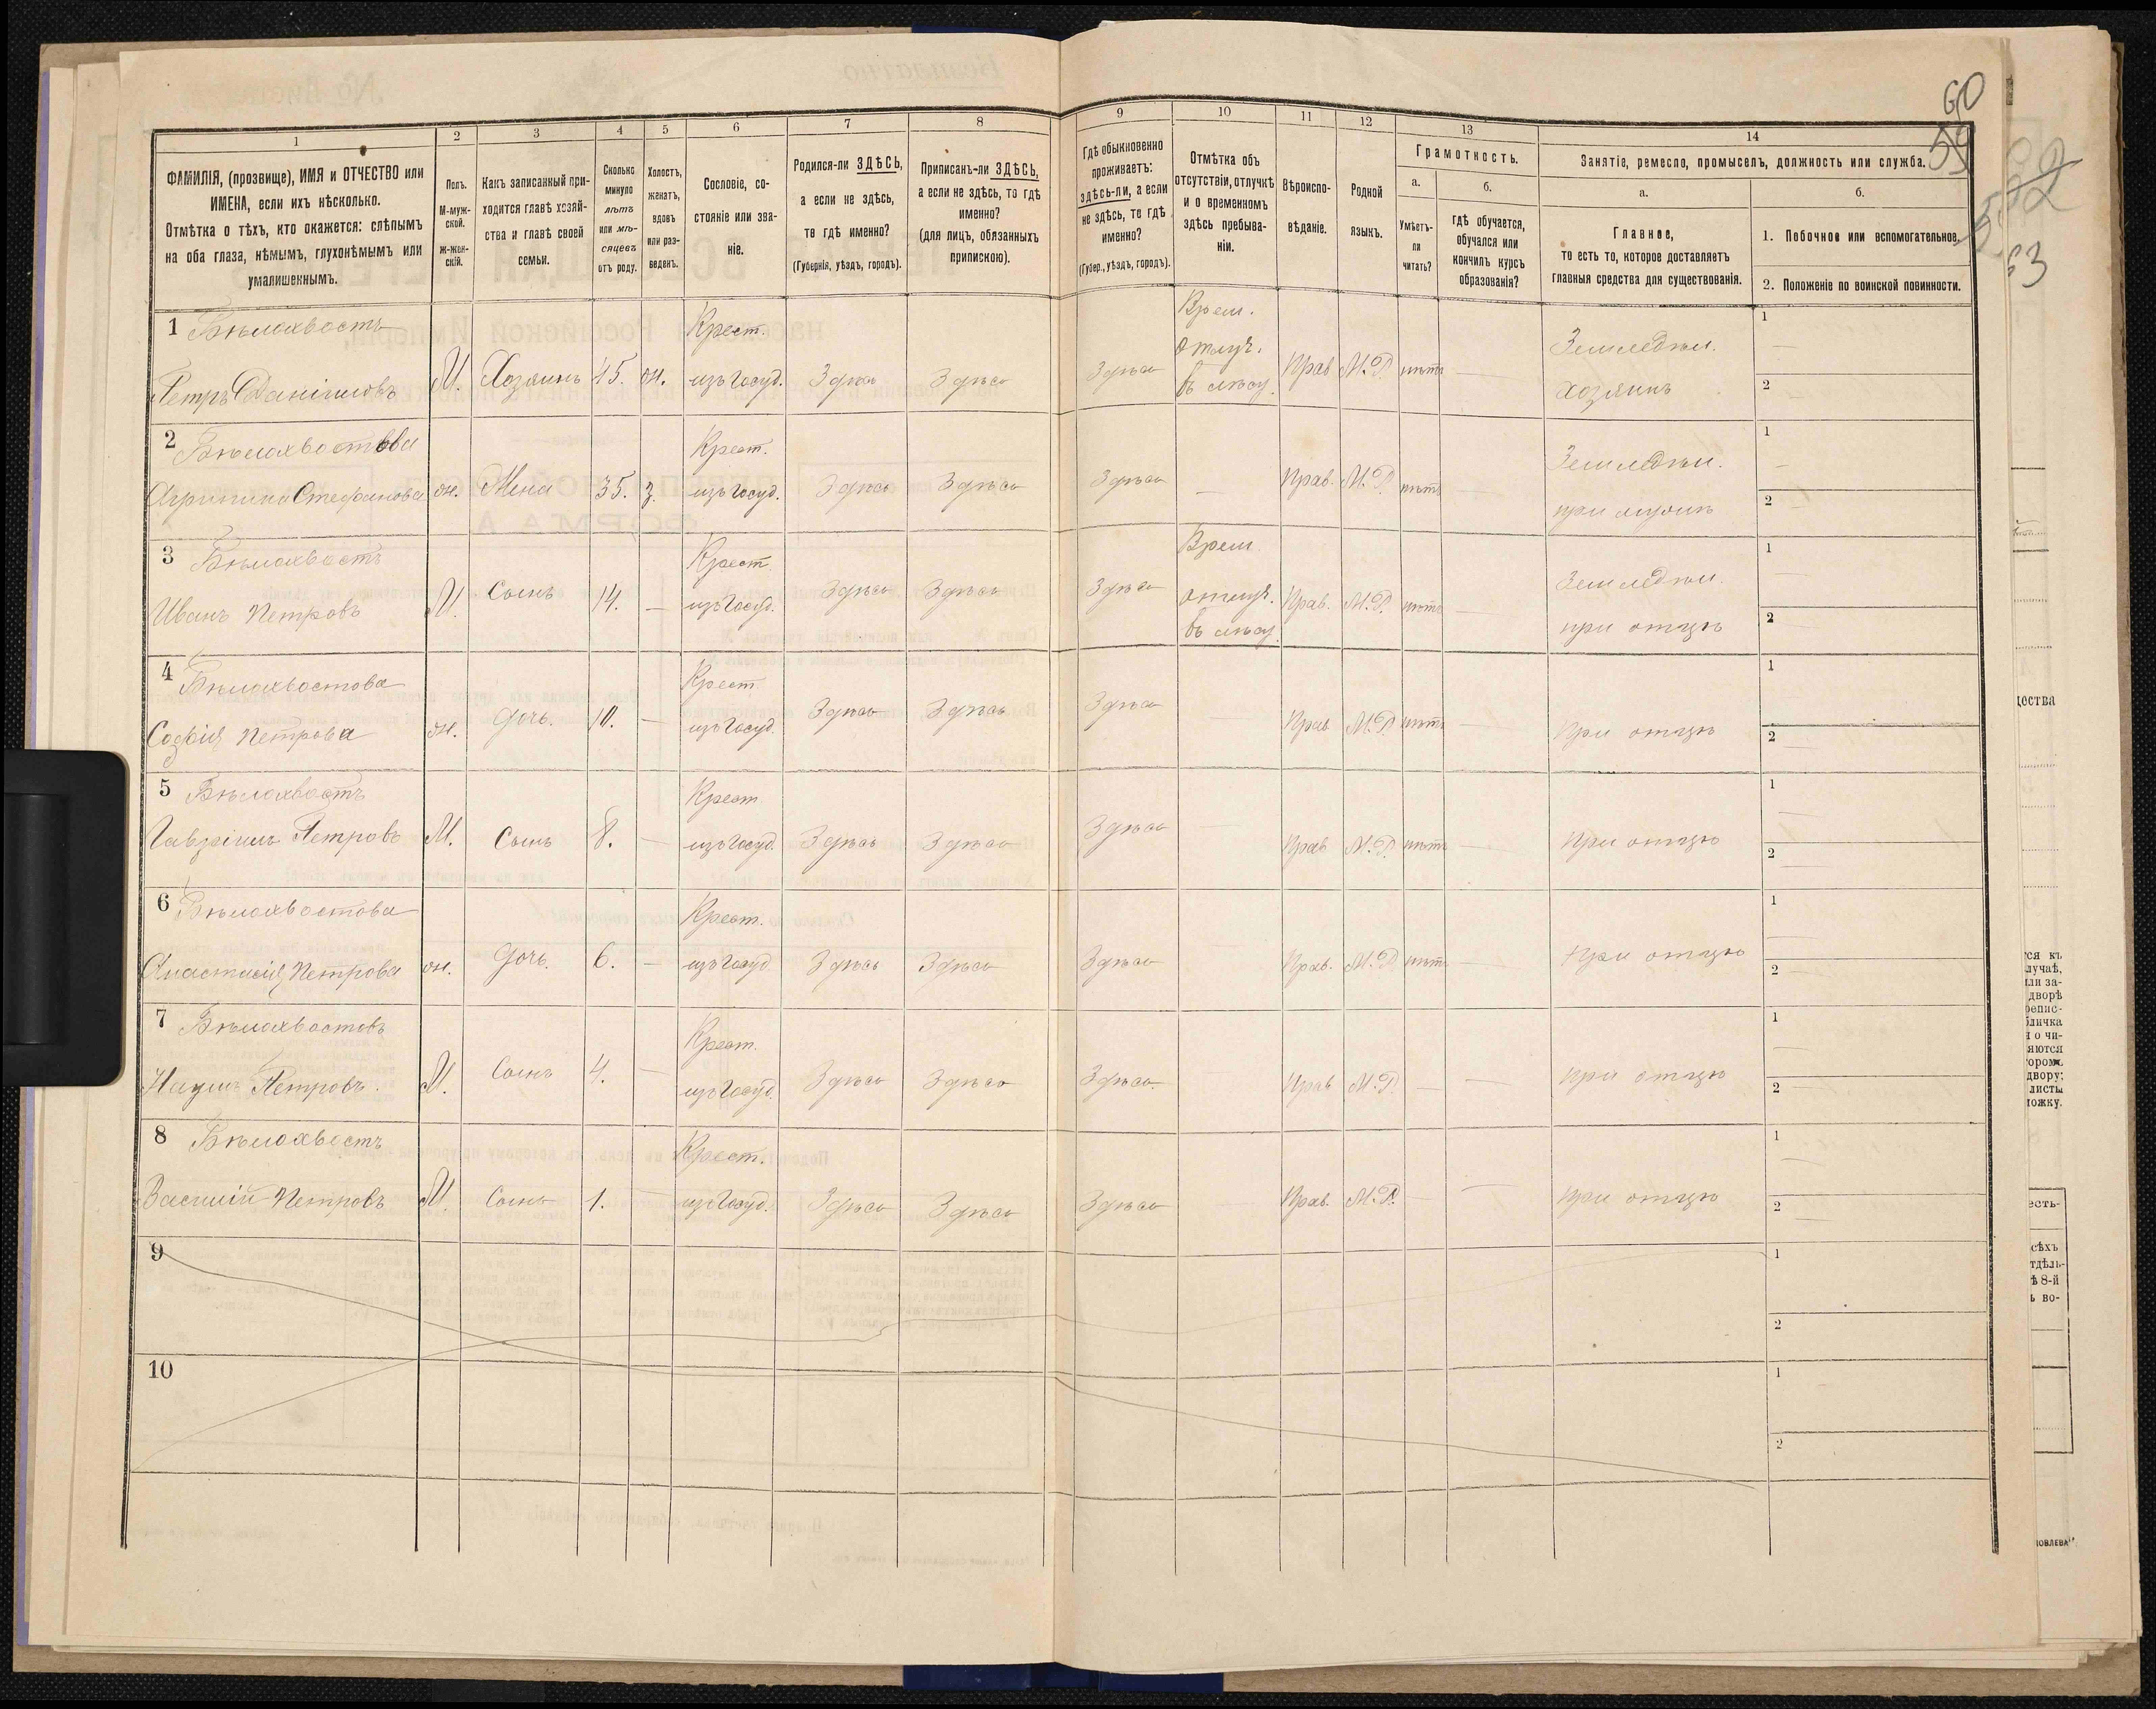 60
59
1 2 3 4 5 6 7 8 9 10 11 12 13 14
ФАМИЛІЯ, (прозвище), ИМЯ и ОТЧЕСТВО или ИМЕНА, если ихъ нѣсколько.
Отмѣтка о тѣхъ, кто окажется: слѣпымъ на оба глаза, нѣмымъ, глухонѣмымъ или умалишеннымъ.
Полъ.
М-мужской.
Ж-женскій.
Какъ записанный приходится главѣ хозяйства и главѣ своей семьи.
Сколько минуло лѣтъ или мѣсяцевъ отъ роду.
Холостъ, женатъ, вдовъ или разведенъ.
Сословіе, состояніе или званіе.
Родился-ли ЗДѢСЬ, а если не здѣсь, то гдѣ именно?
(Губернія, уѣздъ, городъ).
Приписанъ-ли ЗДѢСЬ, а если не здѣсь, то гдѣ именно?
(для лицъ, обязанныхъ припискою).
Гдѣ обыкновенно проживаетъ: здѣсь-ли, а если не здѣсь, то гдѣ именно?
(Губер., уѣздъ, городъ).
Отмѣтка объ отсутствіи, отлучкѣ и о временномъ здѣсь пребываніи.
Вѣроисповѣданіе.
Родной языкъ.
Грамотность.
а.
Умѣетъ-ли читать?
б.
гдѣ обучается, обучался или кончилъ курсъ образованія?
Занятіе, ремесло, промыселъ, должность или служба.
а.
Главное,
то есть то, которое доставляетъ главныя средства для существованія.
б.
1. Побочное или вспомогательное.
2. Положеніе по воинской повинности.
1 Бѣлохвостъ Крест. Врем. Земледѣл. 1
Петръ Даніиловъ М. Хозяинъ 45. ж. изъ госуд. Здѣсь Здѣсь Здѣсь отлуч. въ лѣсу Прав М.Р. нѣтъ — хозяинъ 2
2 Бѣлохвостова Крест. Земледѣл. 1
Агрипина Стефанова ж. Жена 35. з. изъ госуд. Здѣсь Здѣсь Здѣсь — Прав. М.Р. нѣтъ — при мужѣ 2
3 Бѣлохвостъ Крест. Врем. Земледѣл. 1
Иванъ Петровъ М. Сынъ 14. — изъ госуд. Здѣсь Здѣсь Здѣсь отлуч. въ лѣсу. Прав. М.Р. нѣтъ — при отцѣ 2
4 Бѣлохвостова Крест 1
Софія Петрова ж. Дочь. 10. — изъ госуд. Здѣсь Здѣсь Здѣсь Прав М.Р нѣтъ — При отцѣ 2
5 Бѣлохвостъ Крест 1
Гавріилъ Петровъ М. Сынъ 8. — изъ госуд. Здѣсь Здѣсь Здѣсь — Прав М.Р. нѣтъ — При отцѣ 2
6 Бѣлохвостова Крест. 1
Анастасія Петрова ж. Дочь. 6. — изъ госуд Здѣсь Здѣсь Здѣсь Прав. М.Р нѣтъ — При отцѣ 2
7 Бѣлохвостовъ Крест. 1
Наумъ Петровъ. М. Сынъ 4. — изъ госуд. Здѣсь Здѣсь Здѣсь. Прав М.Р. — — при отцѣ 2
8 Бѣлохвостъ Крест. 1
Василій Петровъ М. Сынъ 1. — изъ госуд. Здѣсь Здѣсь Здѣсь Прав. М.Р. — — при отцѣ 2
9 1
2
10 1
2
63
цества
ся къ
лучаѣ,
или за-
дворѣ
репис-
бличка
я о чи-
яются
двору;
листы
ложку.
есть-
сѣхъ
тдѣль-
ѣ 8-й
ь во-
ОВЛЕВА